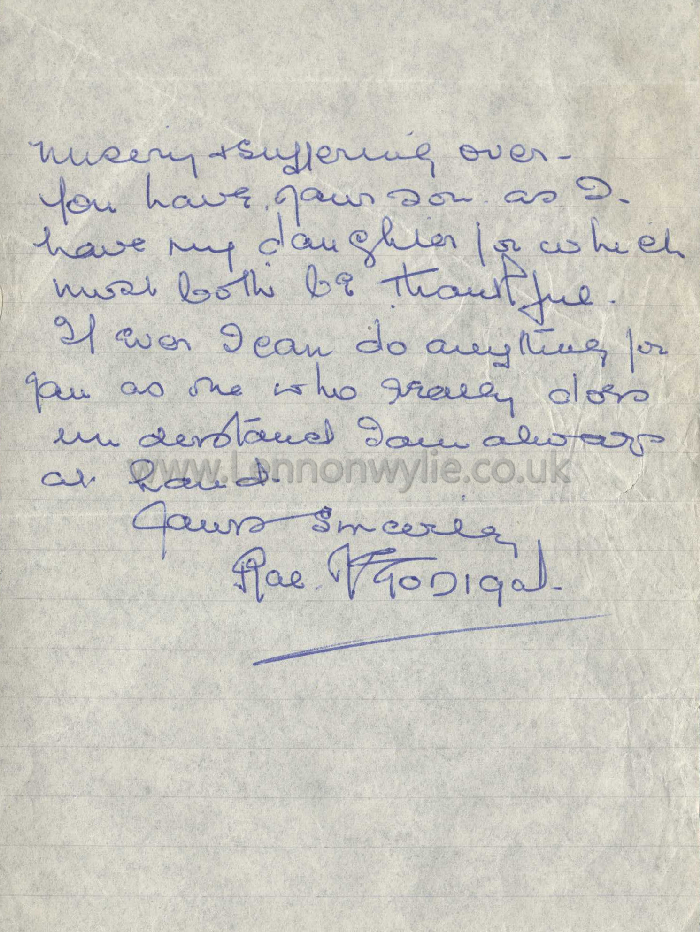 misery & suffering over -
You have your son as I
have my daughter for which
must both be thankful.
If ever I can do anything for
you as one who really does
understand I am always
at hand.
www.Lennonwylie.co.uk
Yours Sincerely
Rae